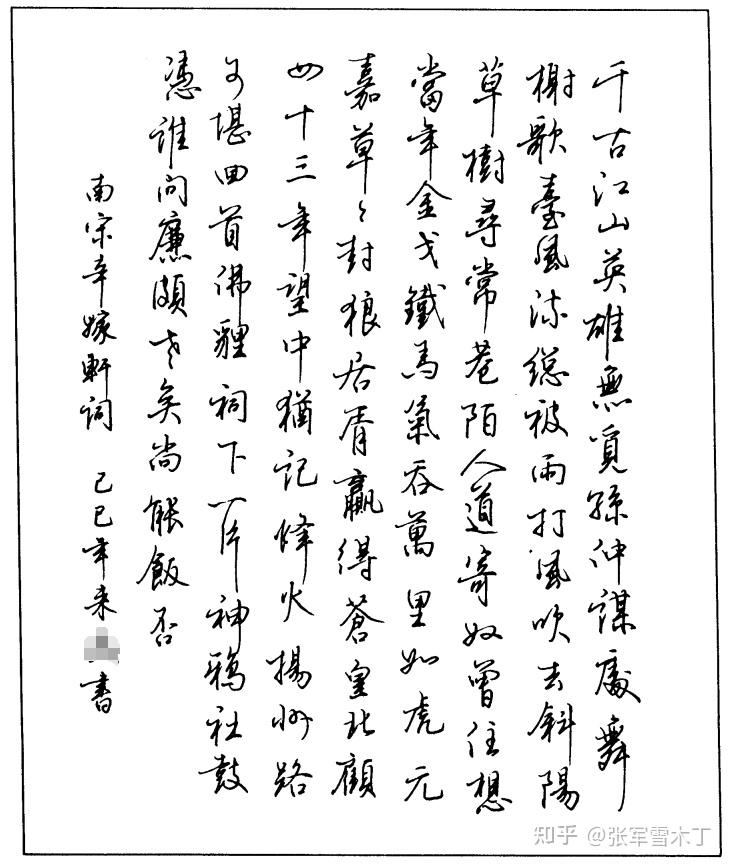 千古江山英雄無覓孫仲謀處舞
榭歌臺風流總被雨打風吹去斜陽
草樹尋常巷陌人道寄奴曾住想
當年金戈鐵馬氣吞萬里如虎元
嘉草々封狼居胥贏得蒼皇北顧
四十三年望中猶記烽火揚州路
可堪回首佛貍祠下一片神鴉社鼓
憑誰問廉頗老矣尚能飯否
南宋辛稼軒詞 己巳年来書
知乎 @张军雪木丁